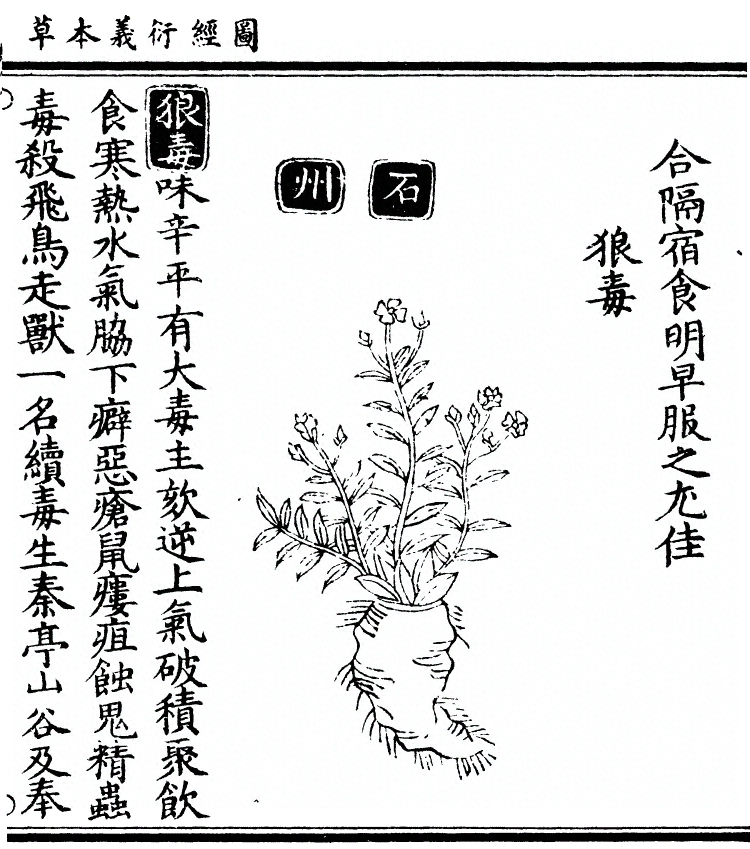 圖經衍義本草
合隔宿食明早服之尤佳
狼毒
石州
狼毒味辛平有大毒主欬逆上氣破積聚飲
食寒熱水氣脇下癖惡瘡鼠瘻疽蝕鬼精蟲
毒殺飛鳥走獸一名續毒生秦亭山谷及奉